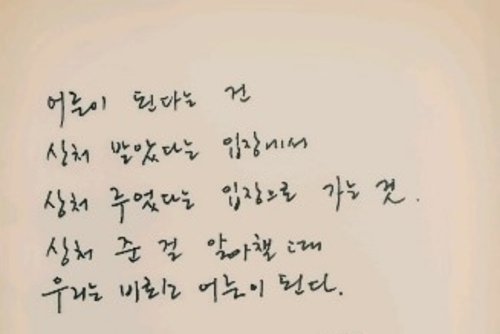 어른이 된다는 건
상처 받았다는 입장에서
상처 주었다는 입장으로 가는 것.
상처 준 걸 알아챌 때
우리는 비로소 어른이 된다.